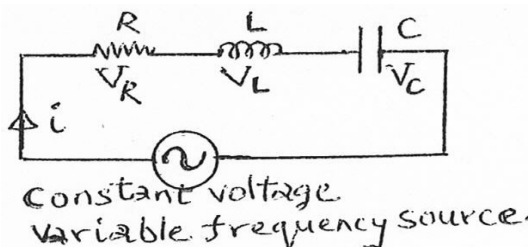 R L C
V_R V_L V_C
i
Constant voltage
variable frequency source.